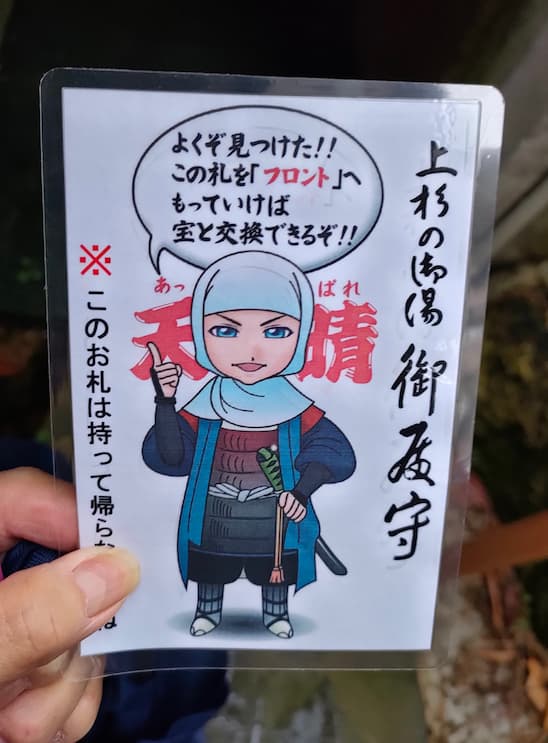 上杉の御湯 御殿守
よくぞ見つけた!!
この札を「フロント」へ
もっていけば
宝と交換できるぞ!!
あっ ぱれ
天晴
※このお札は持って帰らな